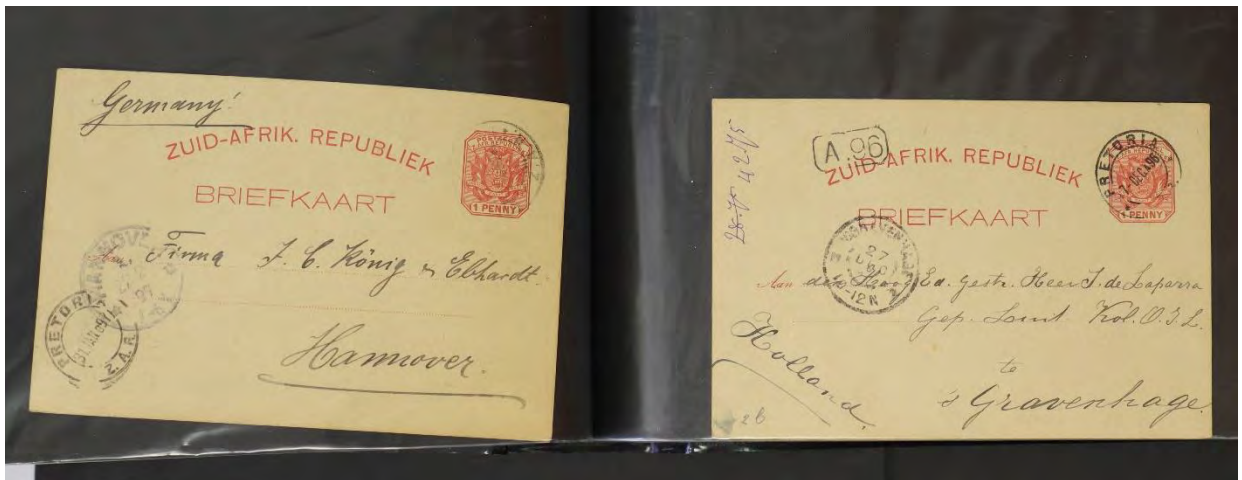 Germany!
ZUID-AFRIK. REPUBLIEK
BRIEFKAART
1 PENNY
Aan Firma J. C. König & Ebhardt.
Hannover.
PRETORIA
Z.A.R.
A.96
ZUID-AFRIK. REPUBLIEK
BRIEFKAART
1 PENNY
PRETORIA
'S GRAVENHAGE
27
10-12N
Aan den Hoog Ed. Gestr. Heer J. de Laparra
Gep. Kol. O.I.L.
te
's Gravenhage.
Holland
26